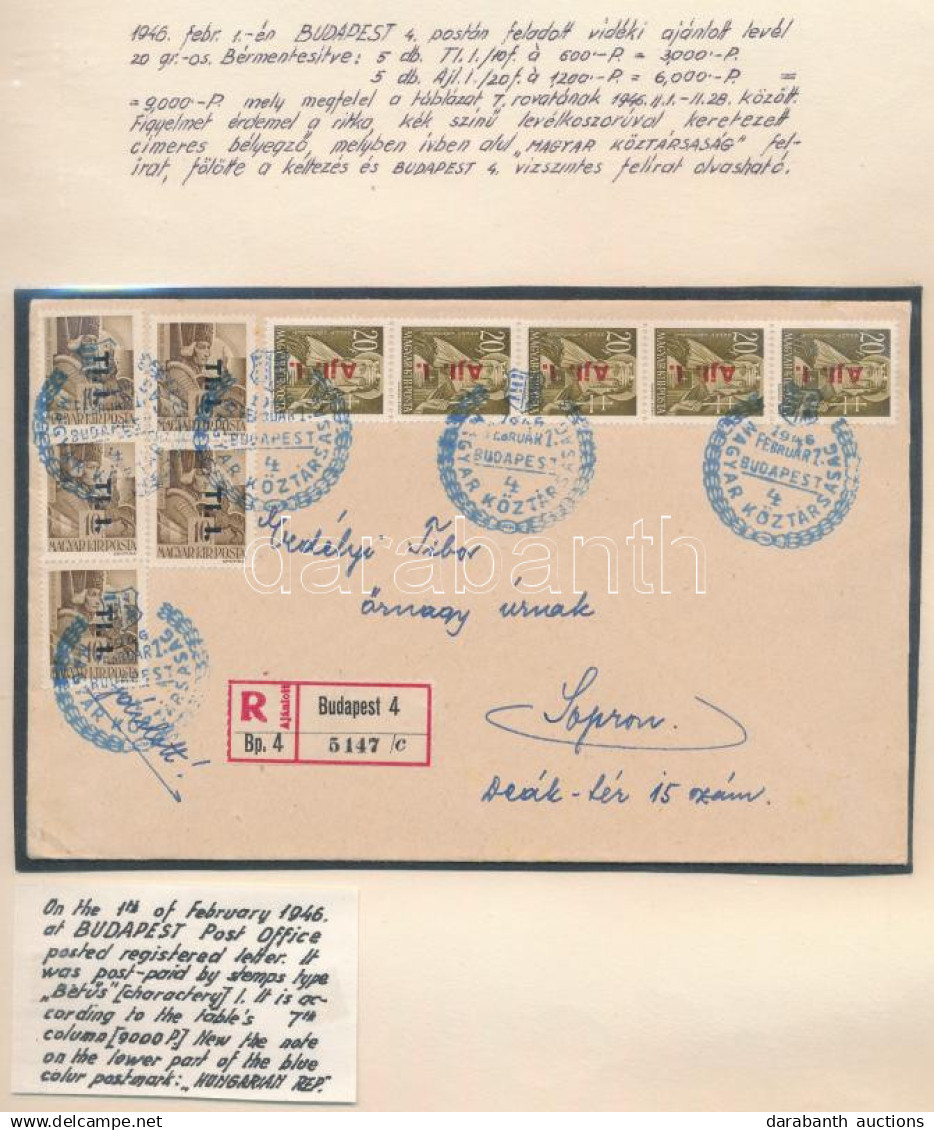 1946. febr. 1.-én BUDAPEST 4. postán feladott vidéki ajánlott levél
20 gr.-os. Bérmentesitve: 5 db. Tl.I./10f. à 600·-P. = 3,000·-P.
5 db. Ajl.I./20f. à 1200·-P. = 6,000·-P. =
= 9,000·-P. mely megfelel a táblázat 7. rovatának 1946.II.1.-II.28. között.
Figyelmet érdemel a ritka, kék szinű levélkoszorúval keretezett
cimeres bélyegző, melyben ivben alul „MAGYAR KÖZTÁRSASÁG" fel-
irat, fölötte a keltezés és BUDAPEST 4. vizszintes felirat olvasható.
Tl. 1.
Tl. 1.
20
Ajl. 1.
20
Ajl. 1.
20
Ajl. 1.
20
Ajl. 1.
20
Ajl. 1.
MAGYAR KIR. POSTA
Tl. 1.
Tl. 1.
MAGYAR KIR POSTA
MAGYAR KIR POSTA
Tl. 1.
1946
FEBRUÁR 1.
BUDAPEST
4
MAGYAR KÖZTÁRSASÁG
1946
FEBRUÁR 1.
BUDAPEST
4
MAGYAR KÖZTÁRSASÁG
Erdélyi Tibor
őrnagy úrnak
Sopron.
Deák-tér 15 szám.
R
Ajánlott
Budapest 4
Bp. 4
5147 /c
darabanth
On the 1th of February 1946.
at BUDAPEST Post Office
posted registered letter. It
was post-paid by stemps type
„Betűs" [charactery] I. It is ac-
cording to the table's 7th
column [9000 P.] New the note
on the lower part of the blue
colur postmark: „HUNGARIAN REP."
darabanth auctions